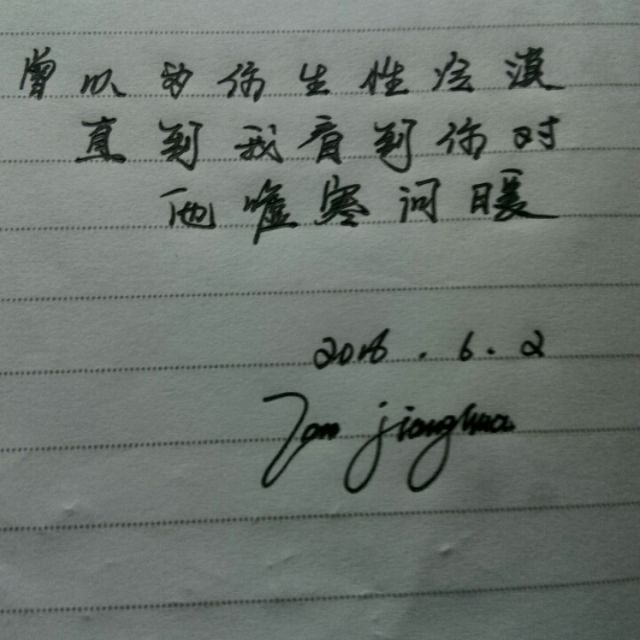 曾以为你生性淡漠
直到我看到你对
他嘘寒问暖
2016.6.2
jianghua